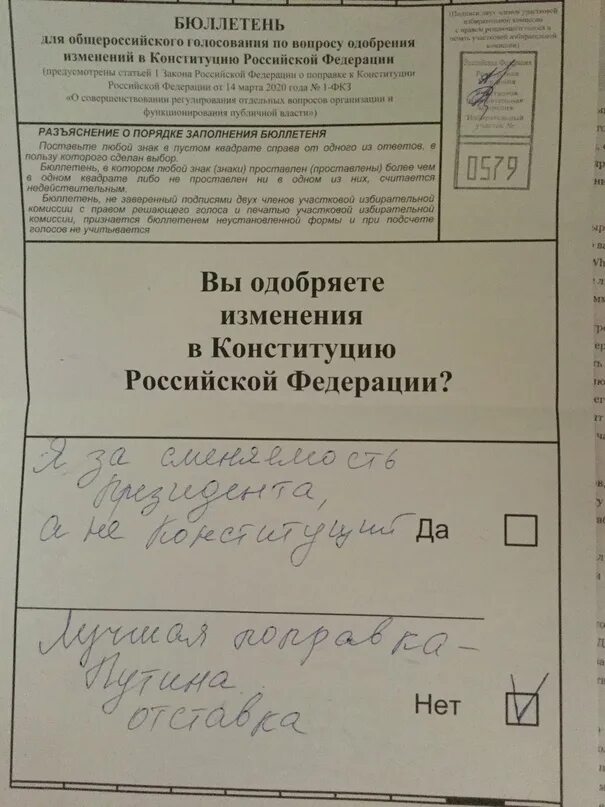 БЮЛЛЕТЕНЬ
для общероссийского голосования по вопросу одобрения
изменений в Конституцию Российской Федерации
(предусмотрены статьей 1 Закона Российской Федерации о поправке к Конституции
Российской Федерации от 14 марта 2020 года № 1-ФКЗ
«О совершенствовании регулирования отдельных вопросов организации и
функционирования публичной власти»)
(Подписи двух членов участковой
избирательной комиссии
с правом решающего голоса и
печать участковой избирательной
комиссии)
Российская Федерация
избирательная
комиссия
Избирательный
участок №
0579
РАЗЪЯСНЕНИЕ О ПОРЯДКЕ ЗАПОЛНЕНИЯ БЮЛЛЕТЕНЯ
Поставьте любой знак в пустом квадрате справа от одного из ответов, в
пользу которого сделан выбор.
Бюллетень, в котором любой знак (знаки) проставлен (проставлены) более чем
в одном квадрате либо не проставлен ни в одном из них, считается
недействительным.
Бюллетень, не заверенный подписями двух членов участковой избирательной
комиссии с правом решающего голоса и печатью участковой избирательной
комиссии, признается бюллетенем неустановленной формы и при подсчете
голосов не учитывается
Вы одобряете
изменения
в Конституцию
Российской Федерации?
Я за сменяемость
Президента,
а не Конституций Да
Лучшая поправка –
Путина
отставка
Нет